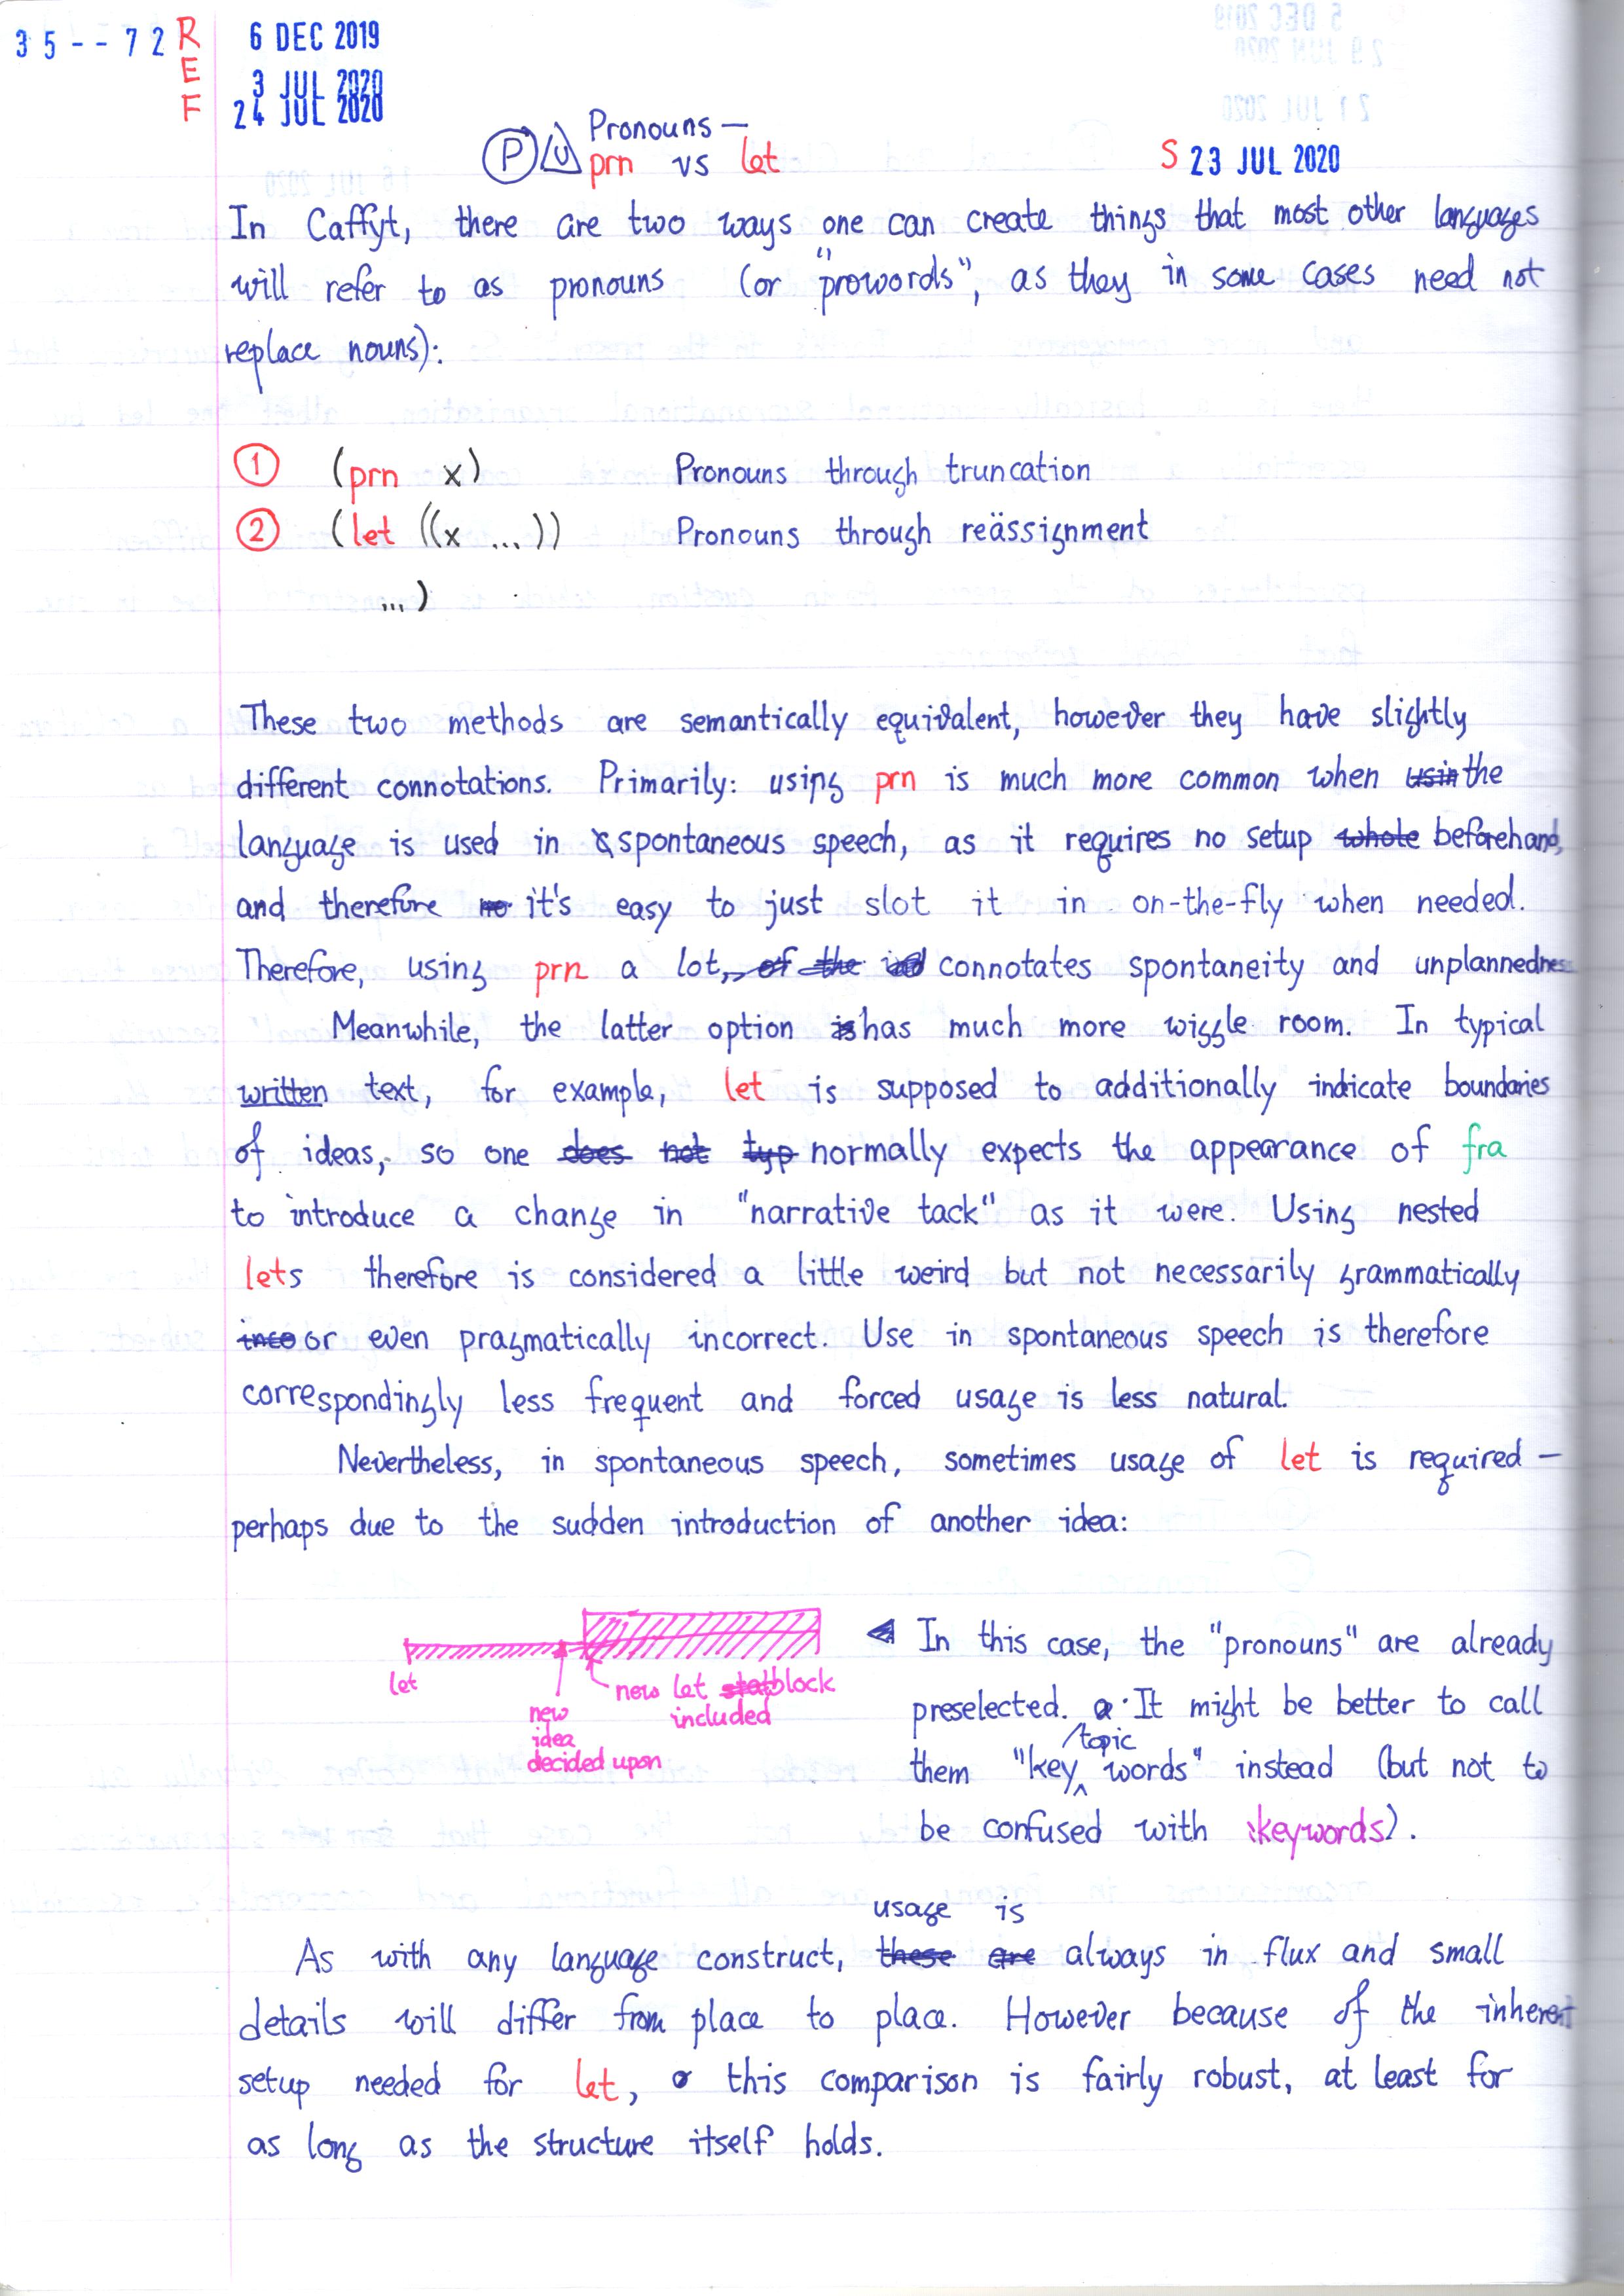 35--72 REF 6 DEC 2019
3 JUL 2020
24 JUL 2020
P U Pronouns —
prn vs let
S 23 JUL 2020
In Caffyt, there are two ways one can create things that most other languages
will refer to as pronouns (or "prowords", as they in some cases need not
replace nouns):
1 (prn x) Pronouns through truncation
2 (let ((x ...)) Pronouns through reässignment
...)
These two methods are semantically equivalent, however they have slightly
different connotations. Primarily: using prn is much more common when usin the
language is used in spontaneous speech, as it requires no setup whole beforehand,
and therefore no it's easy to just slot it in on-the-fly when needed.
Therefore, using prn a lot, of the connotates spontaneity and unplannedness
Meanwhile, the latter option is has much more wiggle room. In typical
written text, for example, let is supposed to additionally indicate boundaries
of ideas, so one does not typ normally expects the appearance of fra
to introduce a change in "narrative tack" as it were. Using nested
lets therefore is considered a little weird but not necessarily grammatically
inco or even pragmatically incorrect. Use in spontaneous speech is therefore
correspondingly less frequent and forced usage is less natural.
Nevertheless, in spontaneous speech, sometimes usage of let is required —
perhaps due to the sudden introduction of another idea:
let
new
idea
decided upon
new let stat block
included
In this case, the "pronouns" are already
preselected. It might be better to call
them "key/topic words" instead (but not to
be confused with :keywords).
usage is
As with any language construct, these are always in flux and small
details will differ from place to place. However because of the inherent
setup needed for let, this comparison is fairly robust, at least for
as long as the structure itself holds.